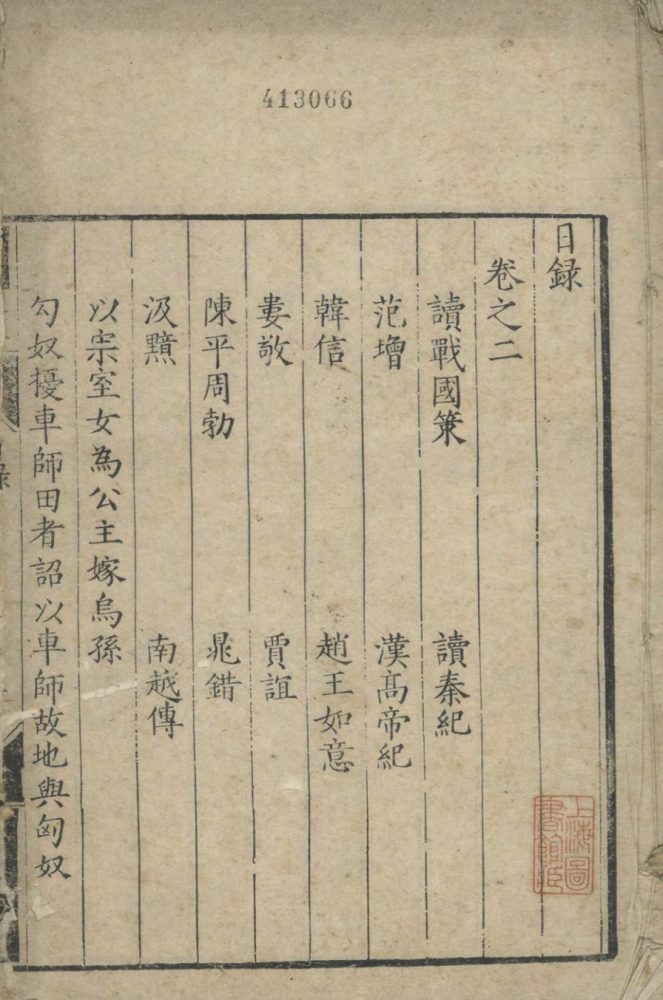 413066
目録
卷之二
讀戰國策 讀秦紀
范增 漢髙帝紀
韓信 趙王如意
婁敬 賈誼
陳平周勃 晁錯
汲黯 南越傳
以宗室女為公主嫁烏孫
匈奴擾車師田者詔以車師故地與匈奴
上海圖
書館藏